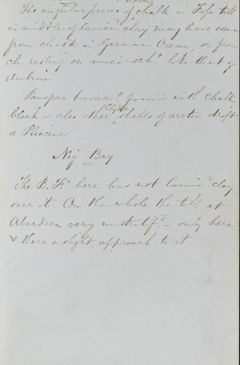 The angular pieces of chalk in Fife till
in middle of lamin. clay may have come
from chalk in German Ocean, or from
ch. resting on mica-scht. like that of
Antrim
Panopæa found with chalk
block — also other shells of arctic drift
a Pliocene
Nig Bay
The B. Fh. here has not lamin. clay
over it. On the whole the till at
Aberdeen very unstratifd. — only here
& there a slight approach to it